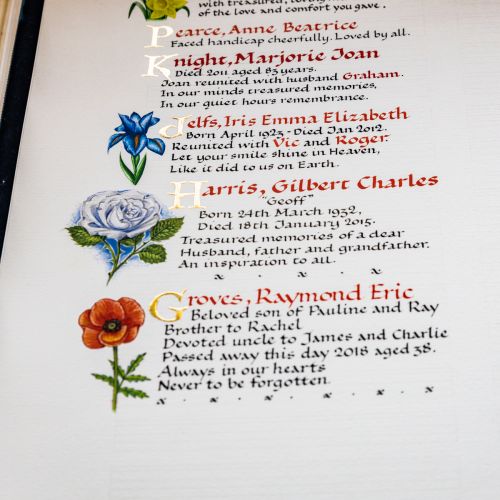 with treasured, loving
of the love and comfort you gave.
Pearce, Anne Beatrice
Faced handicap cheerfully. Loved by all.
Knight, Marjorie Joan
Died 2011 aged 83 years.
Joan reunited with husband Graham.
In our minds treasured memories,
In our quiet hours remembrance.
Jelfs, Iris Emma Elizabeth
Born April 1923 - Died Jan 2012.
Reunited with Vic and Roger.
Let your smile shine in Heaven,
Like it did to us on Earth.
Harris, Gilbert Charles
"Geoff"
Born 24th March 1932,
Died 18th January 2015.
Treasured memories of a dear
Husband, father and grandfather.
An inspiration to all.
x . x . x
Groves, Raymond Eric
Beloved son of Pauline and Ray
Brother to Rachel
Devoted uncle to James and Charlie
Passed away this day 2018 aged 38.
Always in our hearts
Never to be forgotten.
x . x . x . x . x